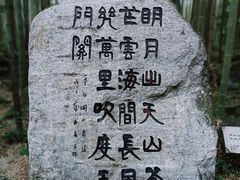 明月出天山蒼
茫雲海間長風
幾萬里吹度玉
門關